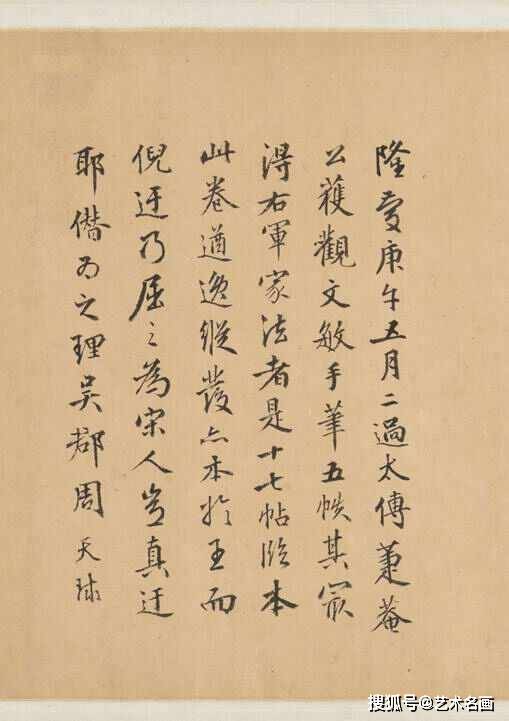 隆慶庚午五月二過太傅菴
公獲觀文敏手筆五帙其最
得右軍家法者是十七帖臨本
此卷遒逸縱發亦本於王而
倪迂乃屈之為宋人豈真迂
耶僭為之理吳郡周天球
搜狐号@艺术名画